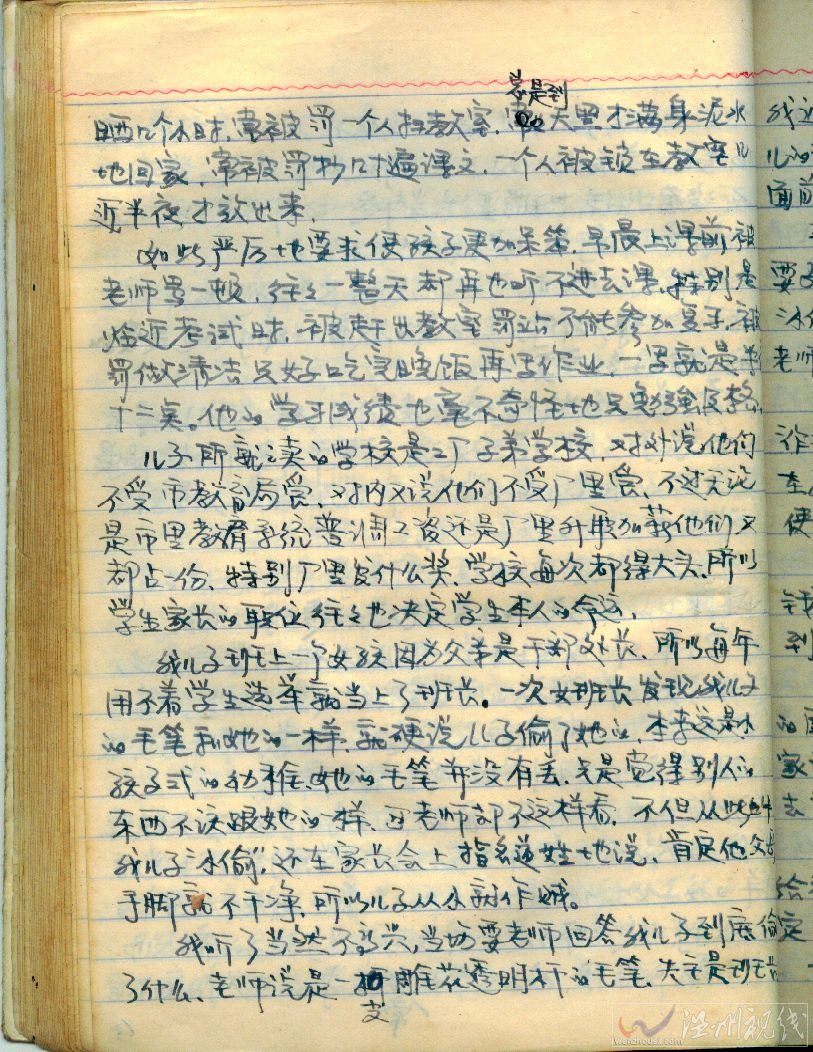 总是到
晒几个小时,常被罚一个人扫教室,天黑才满身泥水
地回家,常被罚抄几十遍课文,一个人被锁在教室儿
近半夜才放出来,
如此严厉地要求使孩子更加呆笨,早晨上课前被
老师骂一顿,往往一整天都再也听不进去课,特别是
临近考试时,被赶出教室罚站不能参加复习,被
罚做清洁只好吃完晚饭再写作业,一写就是半
十二点。他的学习成绩也毫不奇怪地只勉强及格
儿子所就读的学校是工厂子弟学校,对外说他们
不受市教育局管,对内又说他们不受厂里管,不过无论
是市里教育系统普调工资还是厂里升职加薪他们又
都占一份,特别厂里发什么奖,学校每次都得大头,所以
学生家长的职位往往也决定学生本人的命运,
我儿子班上一个女孩因为父亲是干部处长,所以每年
用不着学生选举就当上了班长。一次女班长发现我儿子
的毛笔和她的一样,就硬说儿子偷了她的,本来这是小
孩子式的幼稚,她的毛笔并没有丢,只是觉得别人的
东西不该跟她的一样,可老师却不这样看,不但从此叫
我儿子"小偷",还在家长会上指名道姓地说,肯定他父母
手脚就不干净,所以儿子从小就作贼。
我听了当然不高兴,当场要老师回答我儿子到底偷
了什么,老师说是一支雕花透明杆的毛笔,失主是班长
我
儿的
面前
要
老师
在
使
钱
到
的
家
去
给
定
泾州视线